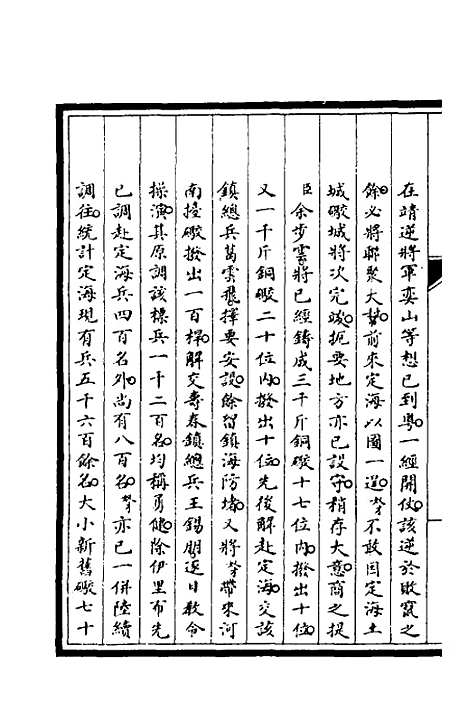 在靖逆將軍奕山等想已到粵一經開仗該逆於敗竄之
餘必將聯聚大䑸前來定海以圖一逞奴才不敢因定海土
城礮城將次完竣扼要地方亦已設守稍存大意商之提
臣余步雲將已經鑄成三千斤銅礮十七位內撥出十位
又一千斤銅礮二十位內撥出十位先後解赴定海交該
鎮總兵葛雲飛擇要安設餘留鎮海防堵又將奴才帶來河
南擡礮撥出一百桿解交壽春鎮總兵王錫朋逐日教令
操演其原調該標兵一千二百名均稱勇健除伊里布先
已調赴定海兵四百名外尚有八百名奴才亦已一併陸續
調往統計定海現有兵五千六百餘名大小新舊礮七十